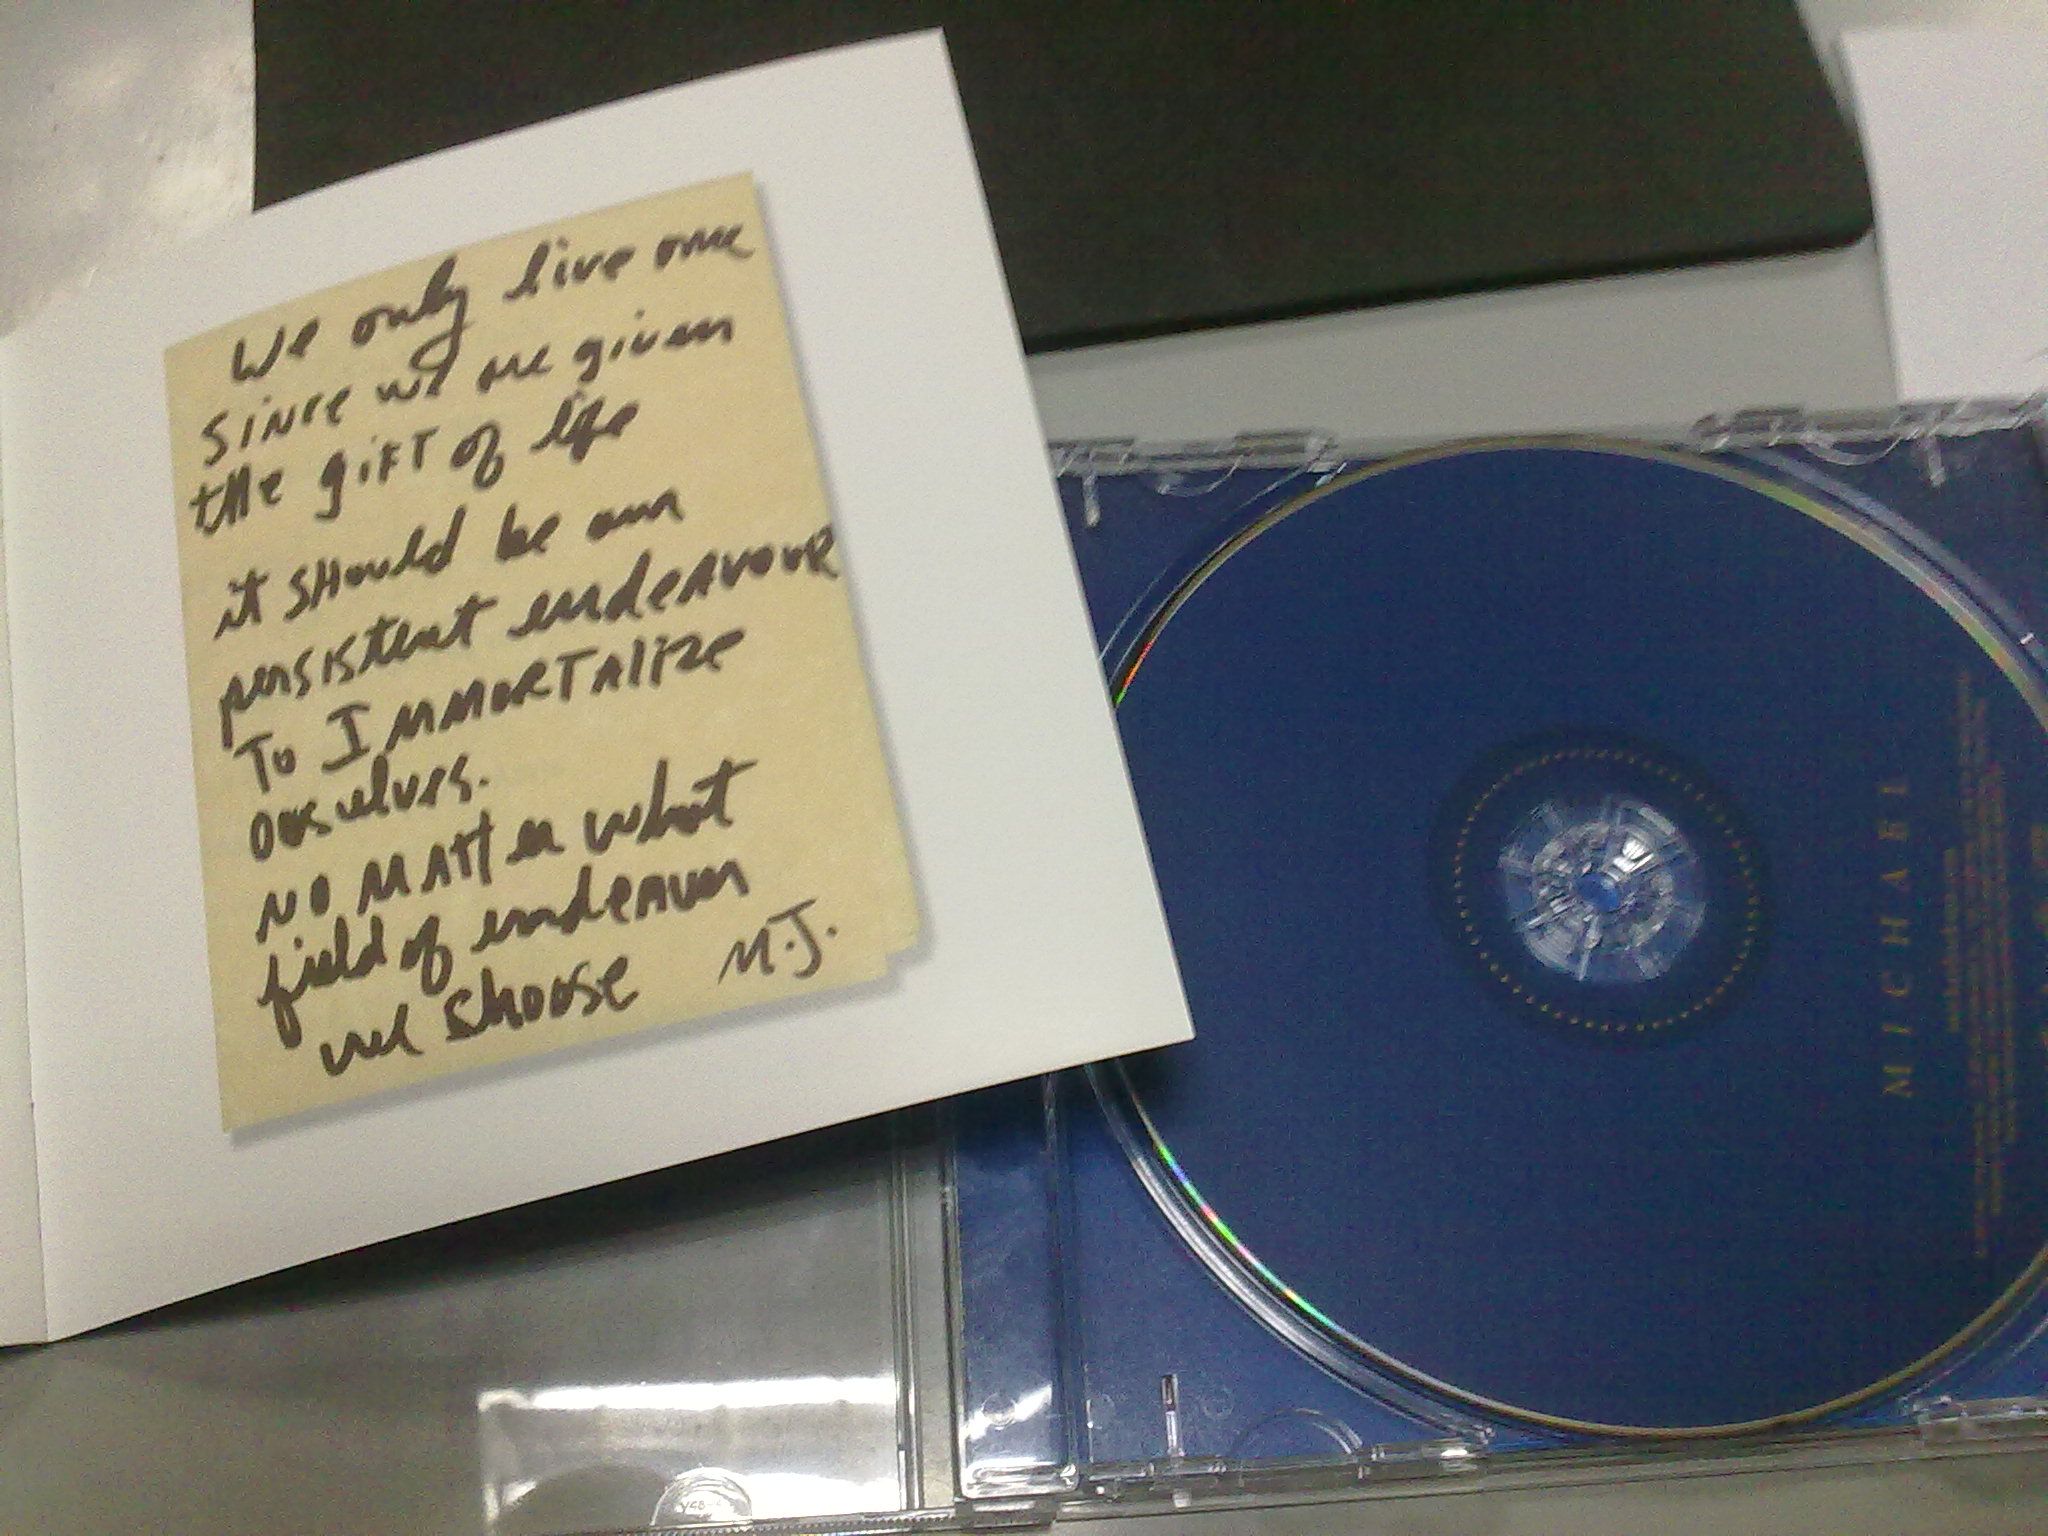 We only live once
since we are given
the gift of life
it SHould be our
persistent endeavour
To IMMORTAlize
ourselves.
NO MAtter what
field of endeavor
we shoose M.J.
MICHAEL